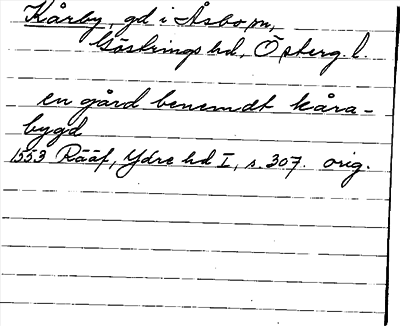 Kårby, gd i Åsbo sn,
Göstrings hd, Östergl.
en gård benemdt kåra-
bygd
1553 Rääf, Ydre hd I, s. 307. orig.